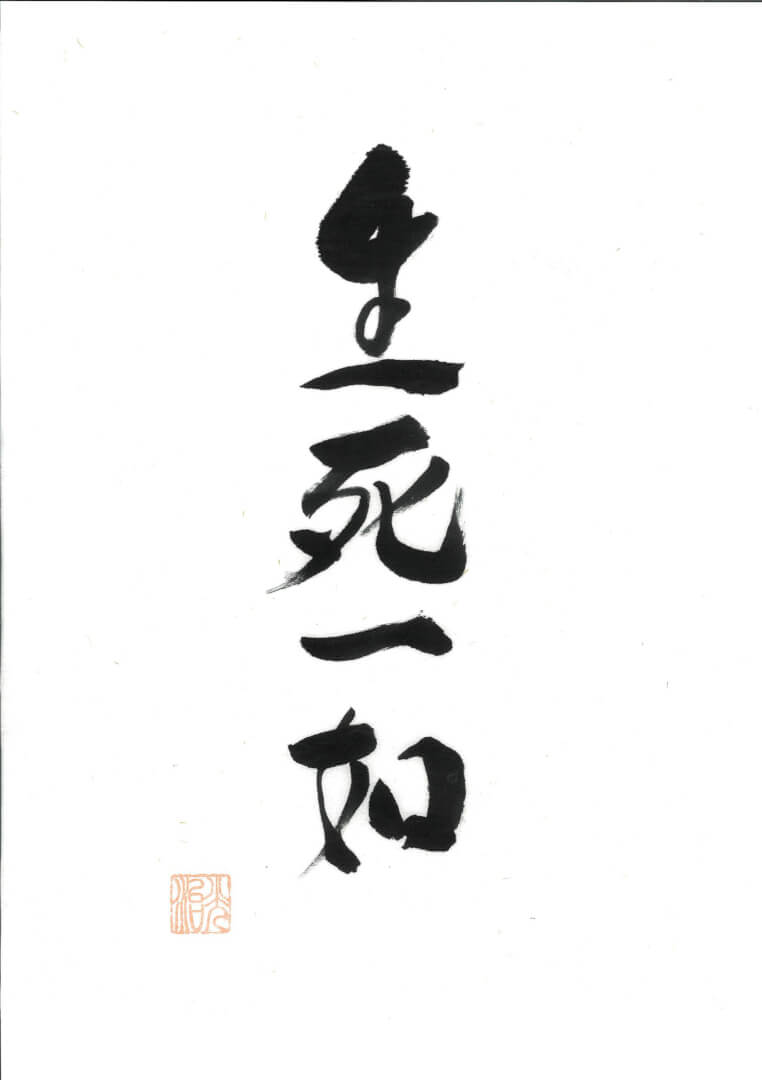 生死一如